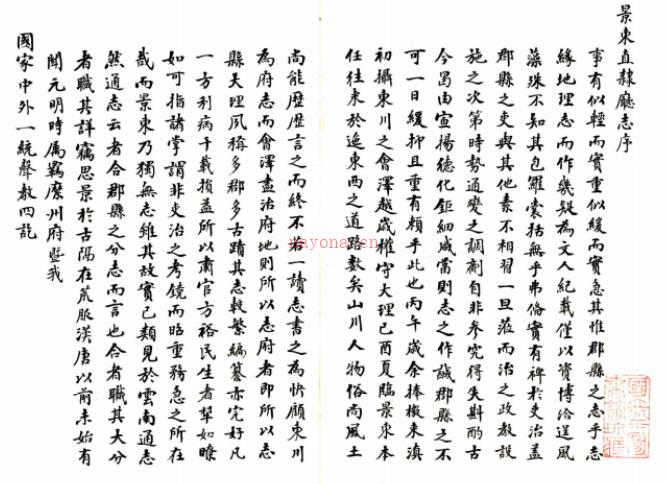 景東直隸廳志序
事有似輕而實重似緩而實急其惟郡縣之志乎志
緣地理志而作幾疑為文人紀載僅以資博洽逞風
藻殊不知其包羅裳括無乎弗備實有裨於吏治蓋
郡縣之吏與其他素不相習一旦蒞而治之政教設
施之次第時勢通變之調劑自非參究得失斟酌古
今曷由宣揚德化鉅細咸當則志之作誠郡縣之不
可一日緩抑且重有賴乎此也丙午歲余捧檄來滇
初攝東川之會澤越歲權守大理己酉夏臨景東本
任往來於迤東西之道路數矣山川人物俗尚風土
尚能歷歷言之而終不若一讀志書之為快顧東川
為府志而會澤盡治府地則所以志府者即所以志
縣大理夙稱多郡多古蹟其志較繁編纂亦完好凡
一方利病千載損益所以肅官方裕民生者犖如瞭
如可指諸掌謂非吏治之考鏡而昭重務急之所在
哉而景東乃獨無志雖其故實已類見於雲南通志
然通志云者合郡縣之分志而言也合者職其大分
者職其詳竊思景於古隅在荒服漢唐以前未始有
聞元明時屬羈縻州府暨我
國家中外一統聲教四訖
nayona.cn